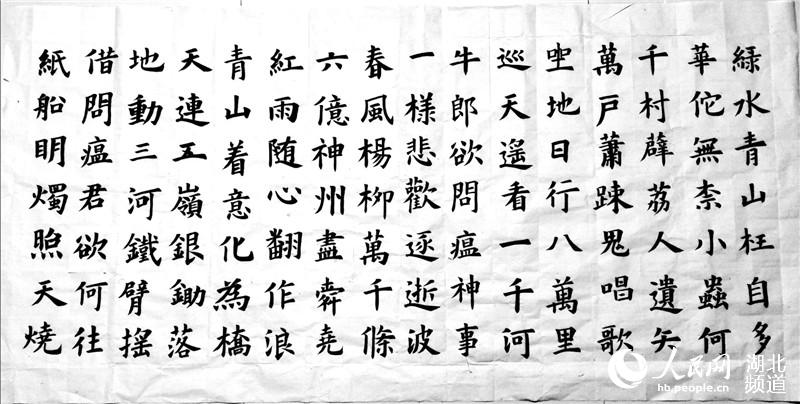 綠水青山枉自多
華佗無柰小蟲何
千村薜荔人遺矢
萬戶蕭踈鬼唱歌
坐地日行八萬里
巡天遙看一千河
牛郎欲問瘟神事
一樣悲歡逐逝波
春風楊柳萬千條
六億神州盡舜堯
紅雨随心翻作浪
青山着意化為橋
天連五嶺銀鋤落
地動三河鐵臂搖
借問瘟君欲何往
紙船明燭照天燒
人民网 湖北频道
hb.people.cn